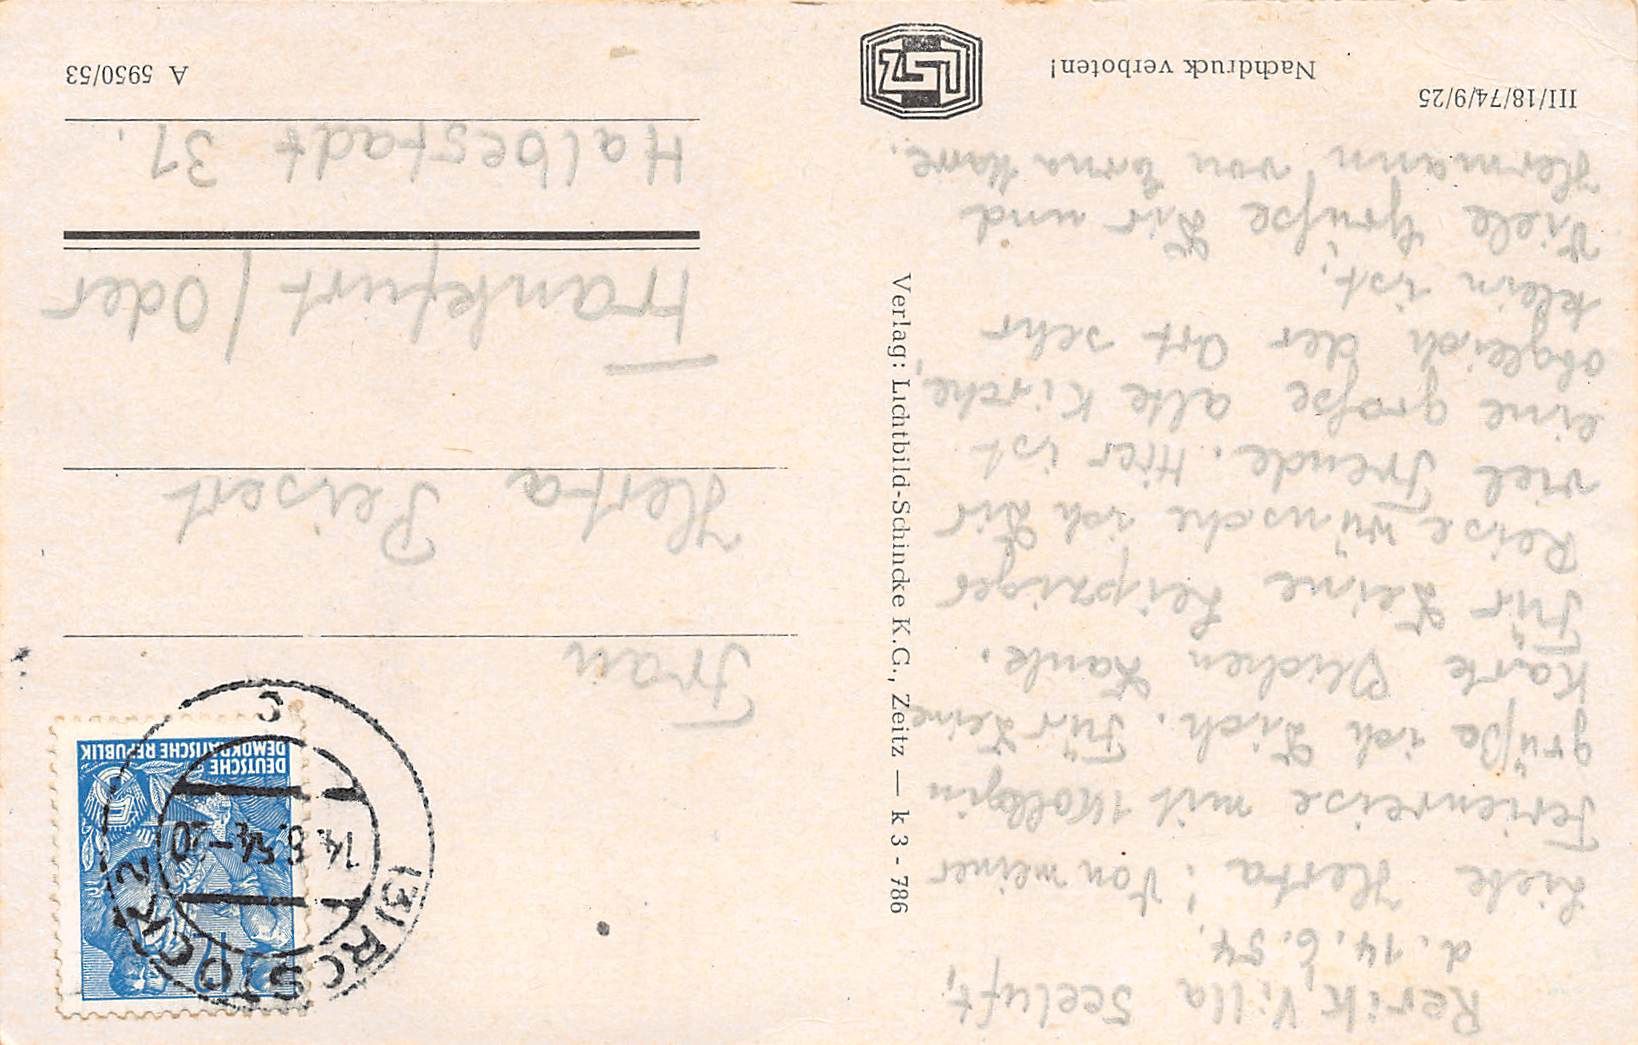 Rerik, Villa Seeluft,
d. 14.6.54.
Liebe Herta! Von meiner
Ferienreise mit Kollegin
grüße ich Dich. Für Deine
Karte Danke.
Für Deine Leipziger
Reise wünsche ich Dir
viel Freude. Hier ist
eine große alte Kirche,
obgleich der Ort sehr
klein ist.
Viele Grüße Dir und
Hermann von Erna
III/18/74/9/25
Nachdruck verboten!
Verlag: Lichtbild-Schincke K.G., Zeitz — k 3 - 786
DEUTSCHE
DEMOKRATISCHE REPUBLIK
(3) ROSTOCK 2
14.6.54-20
c
Frau
Herta Peisert
Frankfurt/Oder
Halbestadt 31.
A 5950/53